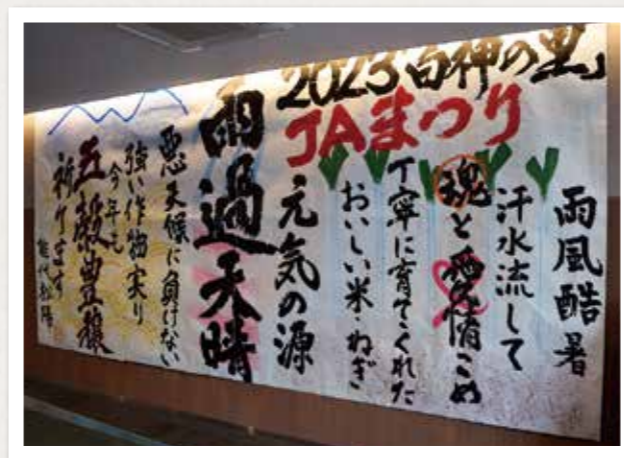 2023「白神の里」
JAまつり
雨風酷暑
汗水流して
魂と愛情こめ
丁寧に育てくれた
おいしい米・ねぎ
元気の源
雨過天晴
悪天候に負けない
強い作物実り
今年も
五穀豊穣
祈ります
能代松陽